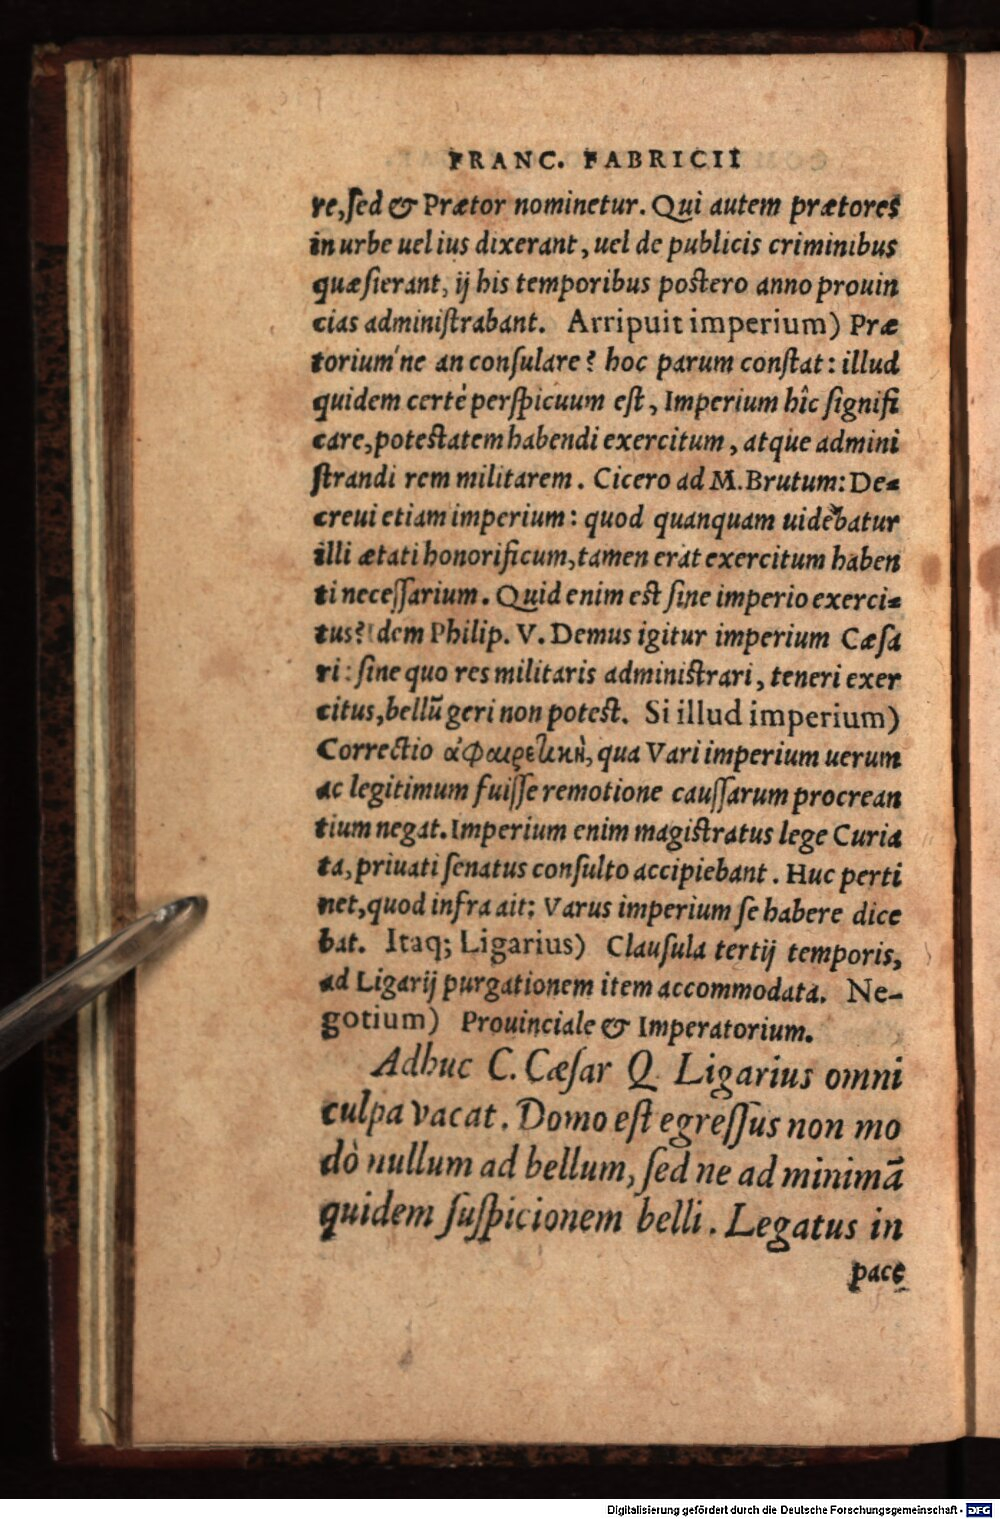 FRANC. FABRICII
re, sed & Prætor nominetur. Qui autem prætores
in urbe uel ius dixerant, uel de publicis criminibus
quæsierant, ij his temporibus postero anno prouin
cias administrabant. Arripuit imperium) Præ
torium'ne an consulare? hoc parum constat: illud
quidem certè perspicuum est, Imperium hîc signifi
care, potestatem habendi exercitum, atque admini
strandi rem militarem. Cicero ad M. Brutum: De-
creui etiam imperium: quod quanquam uidebatur
illi ætati honorificum, tamen erat exercitum haben
ti necessarium. Quid enim est sine imperio exerci-
tus? dem Philip. V. Demus igitur imperium Cæsa
ri: sine quo res militaris administrari, teneri exer
citus, bellū geri non potest. Si illud imperium)
Correctio ἀφαιρετικὴ, qua Vari imperium uerum
ac legitimum fuisse remotione caussarum procrean
tium negat. Imperium enim magistratus lege Curia
ta, priuati senatus consulto accipiebant. Huc perti
net, quod infra ait: Varus imperium se habere dice
bat. Itaq; Ligarius) Clausula tertij temporis,
ad Ligarij purgationem item accommodata. Ne-
gotium) Prouinciale & Imperatorium.
Adhuc C. Cæsar Q. Ligarius omni
culpa vacat. Domo est egressus non mo
dò nullum ad bellum, sed ne ad minimā
quidem suspicionem belli. Legatus in
pace
Digitalisierung gefördert durch die Deutsche Forschungsgemeinschaft - DFG